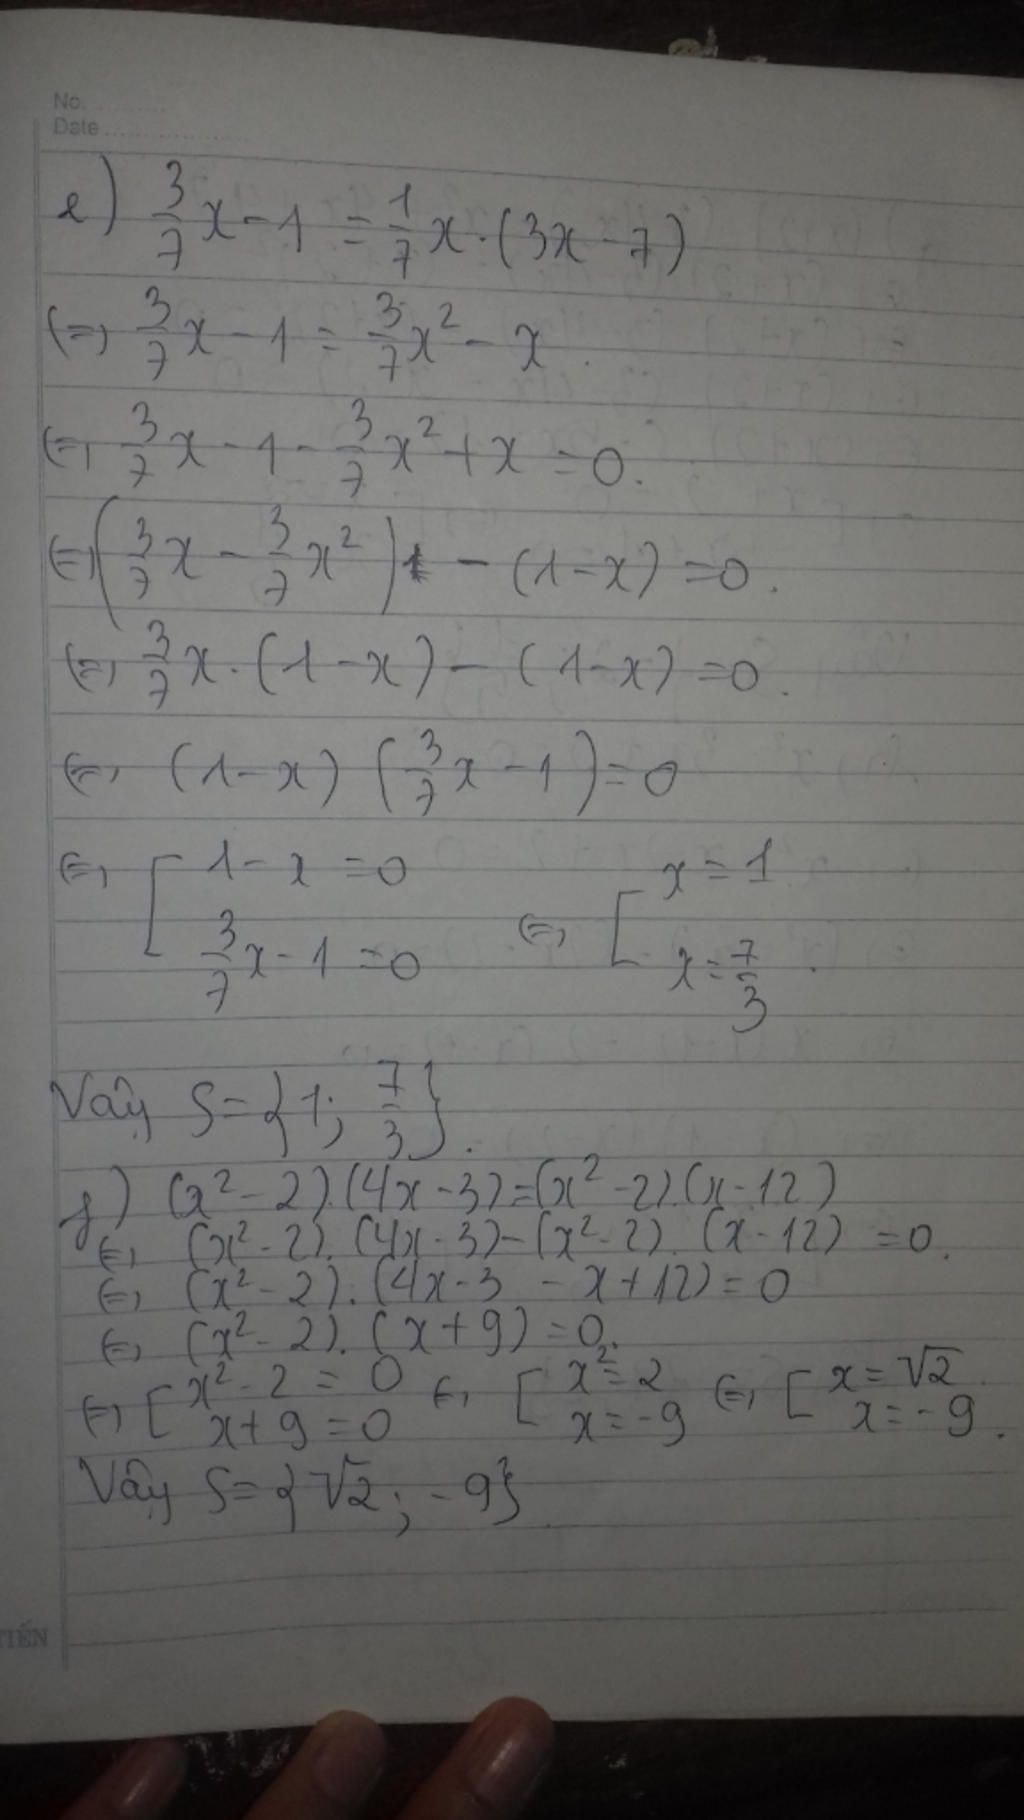 No. ...........
Date ..................
e) 3/7 x - 1 = 1/7 x . (3x - 7)
(=) 3/7 x - 1 = 3/7 x² - x .
(=) 3/7 x - 1 - 3/7 x² + x = 0.
(=) (3/7 x - 3/7 x²) - (1 - x) = 0.
(=) 3/7 x . (1 - x) - (1 - x) = 0.
(=) (1 - x) (3/7 x - 1) = 0
(=) [ 1 - x = 0 (=) [ x = 1
3/7 x - 1 = 0 x = 7/3 .
Vậy S = {1; 7/3}.
f) (x² - 2).(4x - 3) = (x² - 2).(x - 12)
(=) (x² - 2). (4x - 3) - (x² - 2). (x - 12) = 0.
(=) (x² - 2). (4x - 3 - x + 12) = 0
(=) (x² - 2). (x + 9) = 0.
(=) [ x² - 2 = 0 (=) [ x² = 2 (=) [ x = √2
x + 9 = 0 x = -9 x = -9 .
Vậy S = {√2 ; -9}
TIẾN